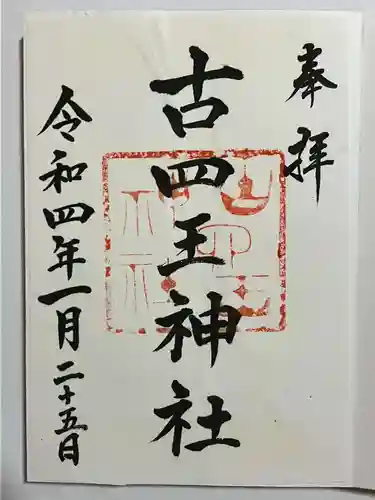 奉拝
古四王神社
令和四年一月二十五日